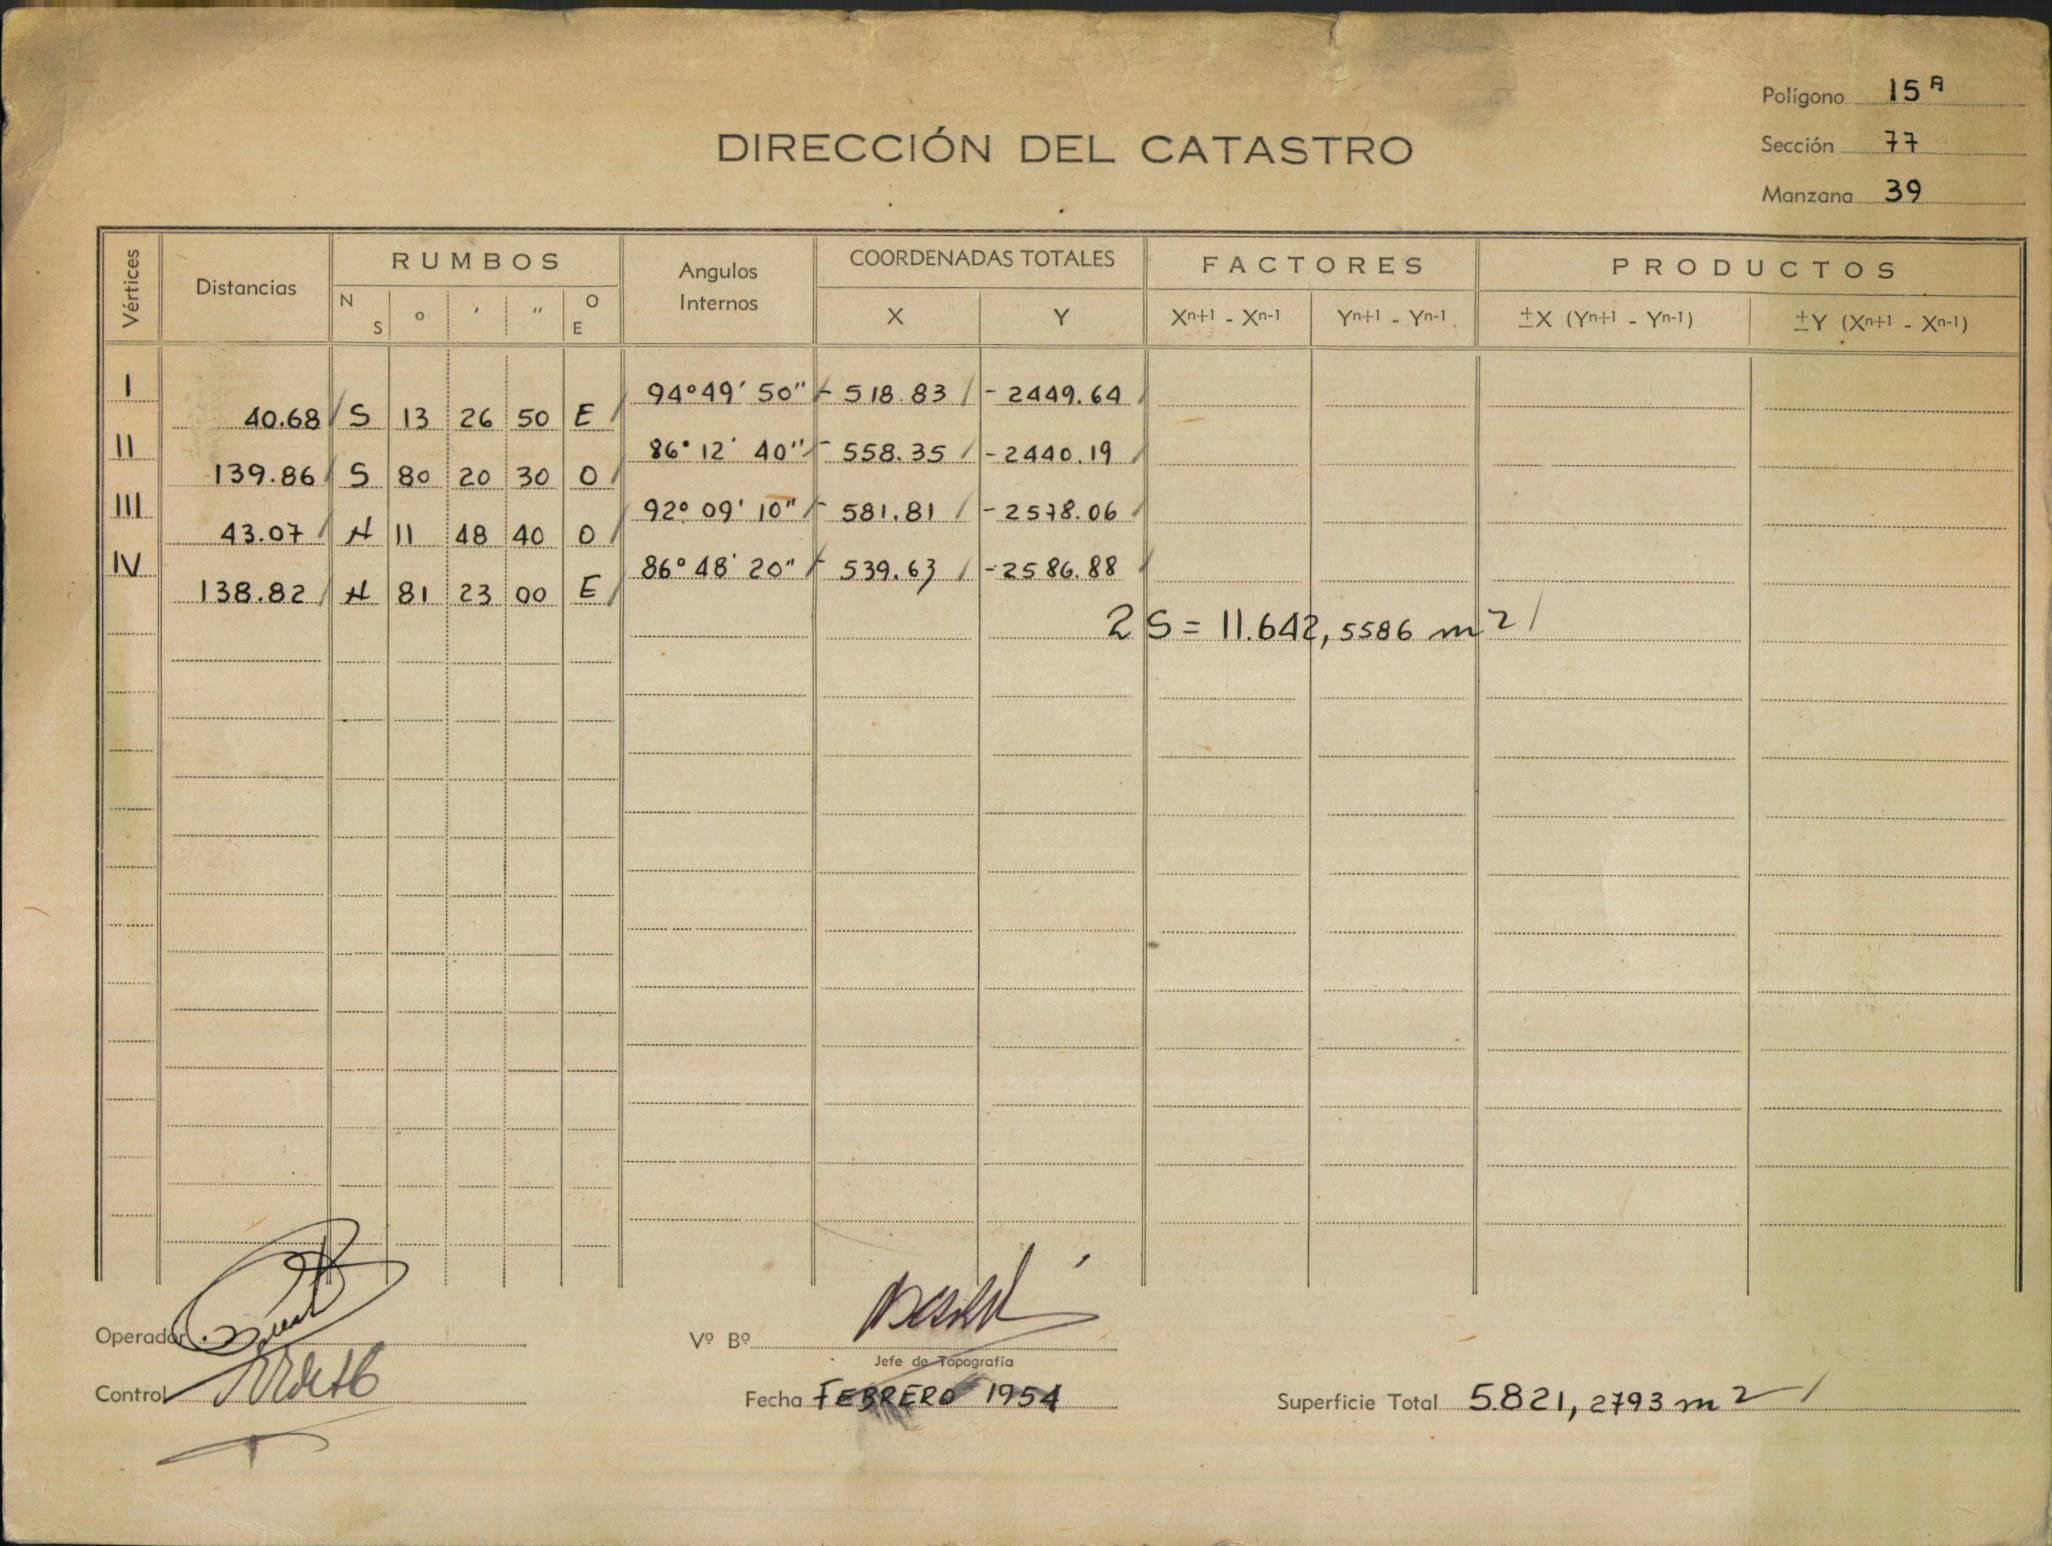 Polígono 15 A
DIRECCIÓN DEL CATASTRO
Sección 77
Manzana 39
Vértices Distancias RUMBOS Angulos Internos COORDENADAS TOTALES FACTORES PRODUCTOS
N S ° ′ ″ O E X Y Xn+1 - Xn-1 Yn+1 - Yn-1 ±X (Yn+1 - Yn-1) ±Y (Xn+1 - Xn-1)
I 94°49′ 50″ - 518.83 - 2449.64
40.68 S 13 26 50 E
II 86° 12′ 40″ - 558.35 - 2440.19
139.86 S 80 20 30 O
III 92° 09′ 10″ - 581.81 - 2578.06
43.07 N 11 48 40 O
IV 86° 48′ 20″ - 539.63 - 2586.88
138.82 N 81 23 00 E
2 S = 11.642,5586 m2
Operador
Vº Bº
Jefe de Topografía
Control
Fecha FEBRERO 1954
Superficie Total 5.821,2793 m2